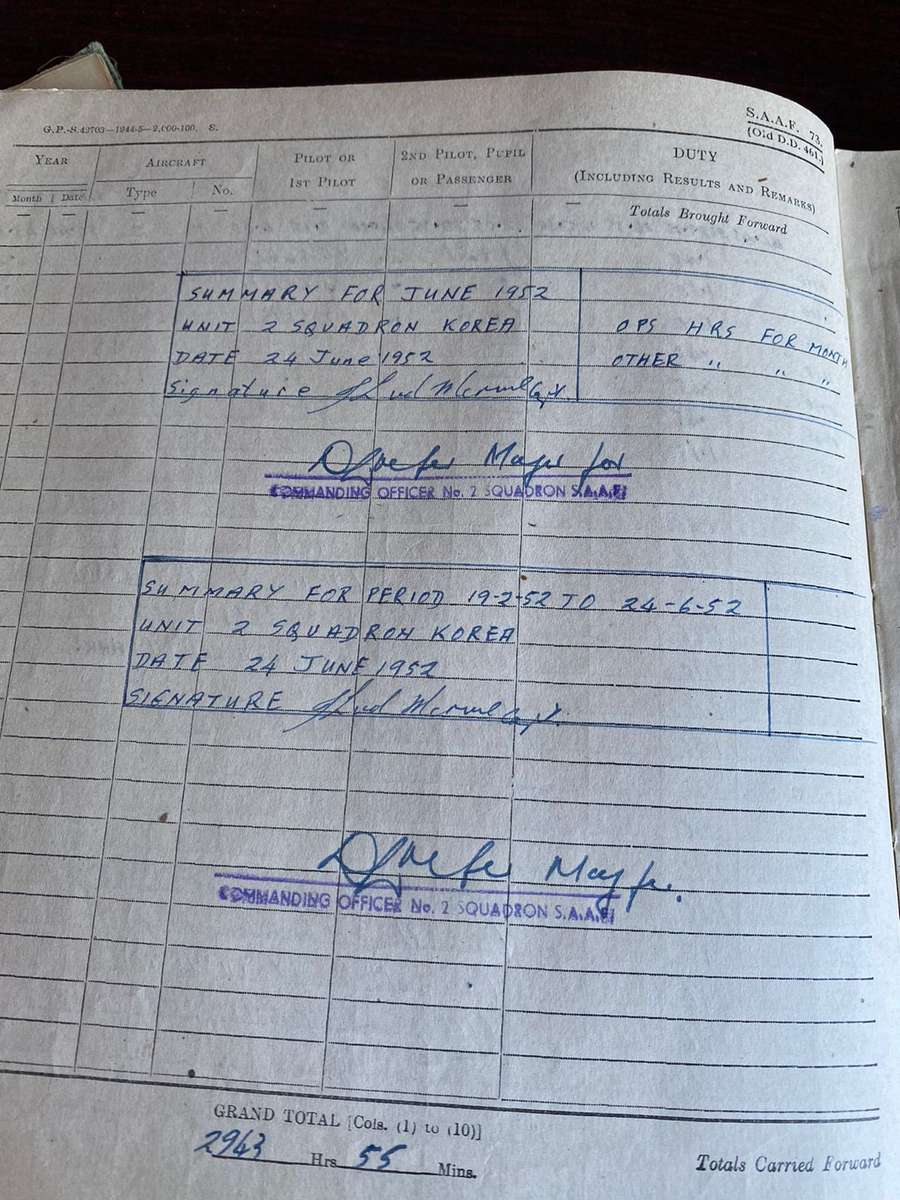 G.P.-S.42703—1944-5—2,000-100. S.
S.A.A.F. 73.
(Old D.D. 461.)
YEAR
AIRCRAFT
PILOT OR
1ST PILOT
2ND PILOT, PUPIL
OR PASSENGER
DUTY
(INCLUDING RESULTS AND REMARKS)
Month Date Type No.
— — — — — — —
Totals Brought Forward
SUMMARY FOR JUNE 1952
UNIT 2 SQUADRON KOREA OPS HRS FOR MONTH
DATE 24 June 1952 OTHER " " "
Signature
Major for
COMMANDING OFFICER No. 2 SQUADRON S.A.A.F.
SUMMARY FOR PERIOD 19-2-52 TO 24-6-52
UNIT 2 SQUADRON KOREA
DATE 24 JUNE 1952
SIGNATURE
COMMANDING OFFICER No. 2 SQUADRON S.A.A.F.
GRAND TOTAL [Cols. (1) to (10)]
2943 Hrs 55 Mins.
Totals Carried Forward